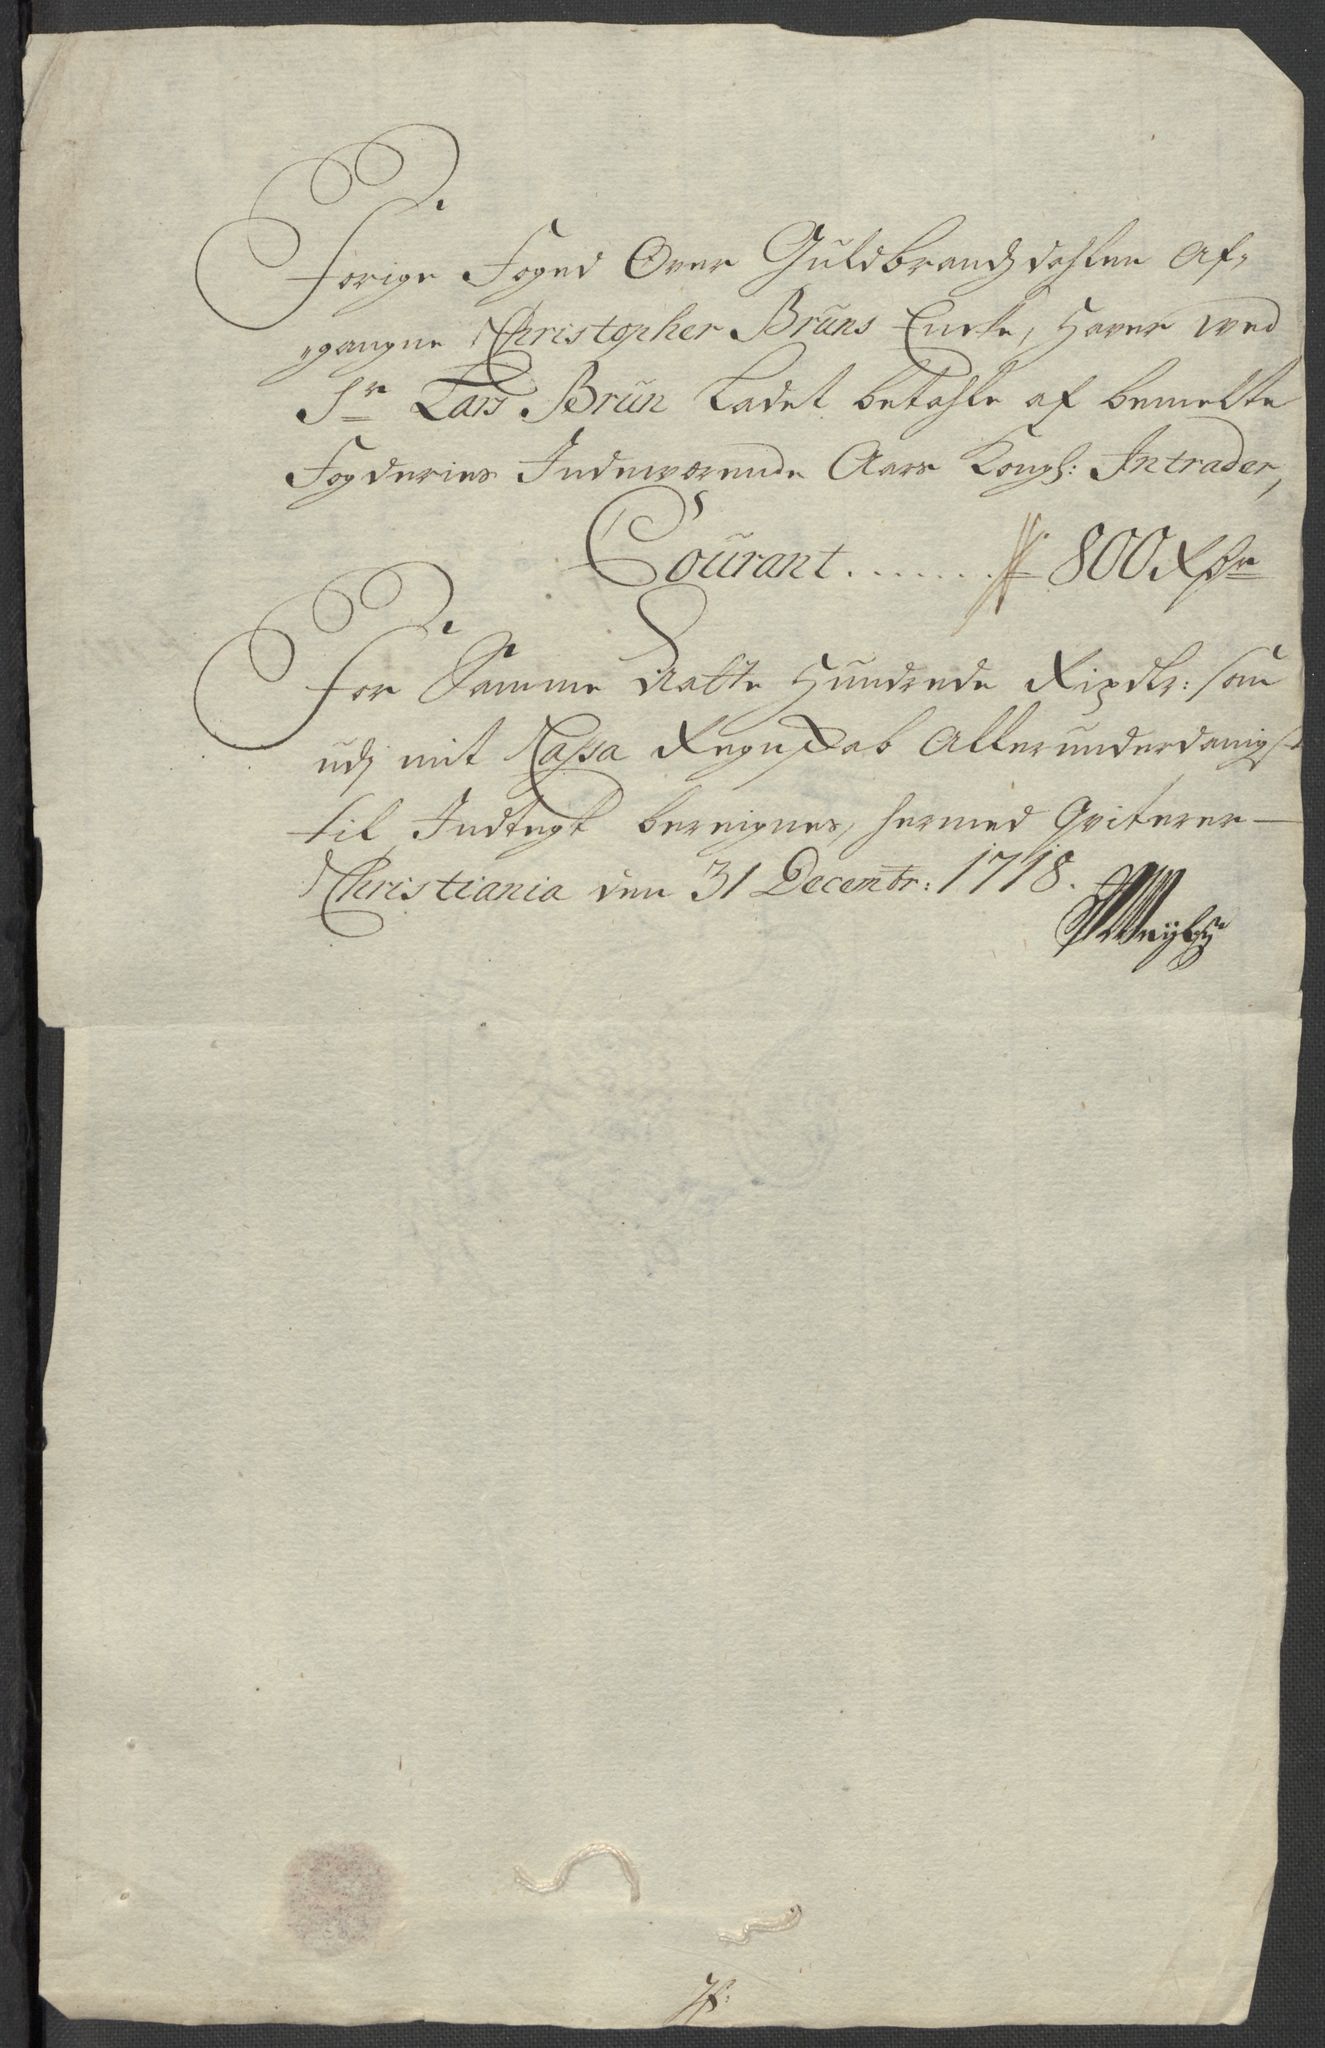 Forige Foged Over Guldbrandsdahlen Af-
gangne Christopher Bruns Encke, Haver wed
Sr Lars Brun Ladet betahle af bemelte
Fogderies Indeværende Aars Kongl: Intrader,
Courant....... 800 Rdr
For Samme Aatte Hundrede Rixdlr: som
udj mit Cassa Regnskab Allerunderdanigst
til Indtegt bereignes, hermed Qviterer
Christiania den 31 Decembr: 1718.